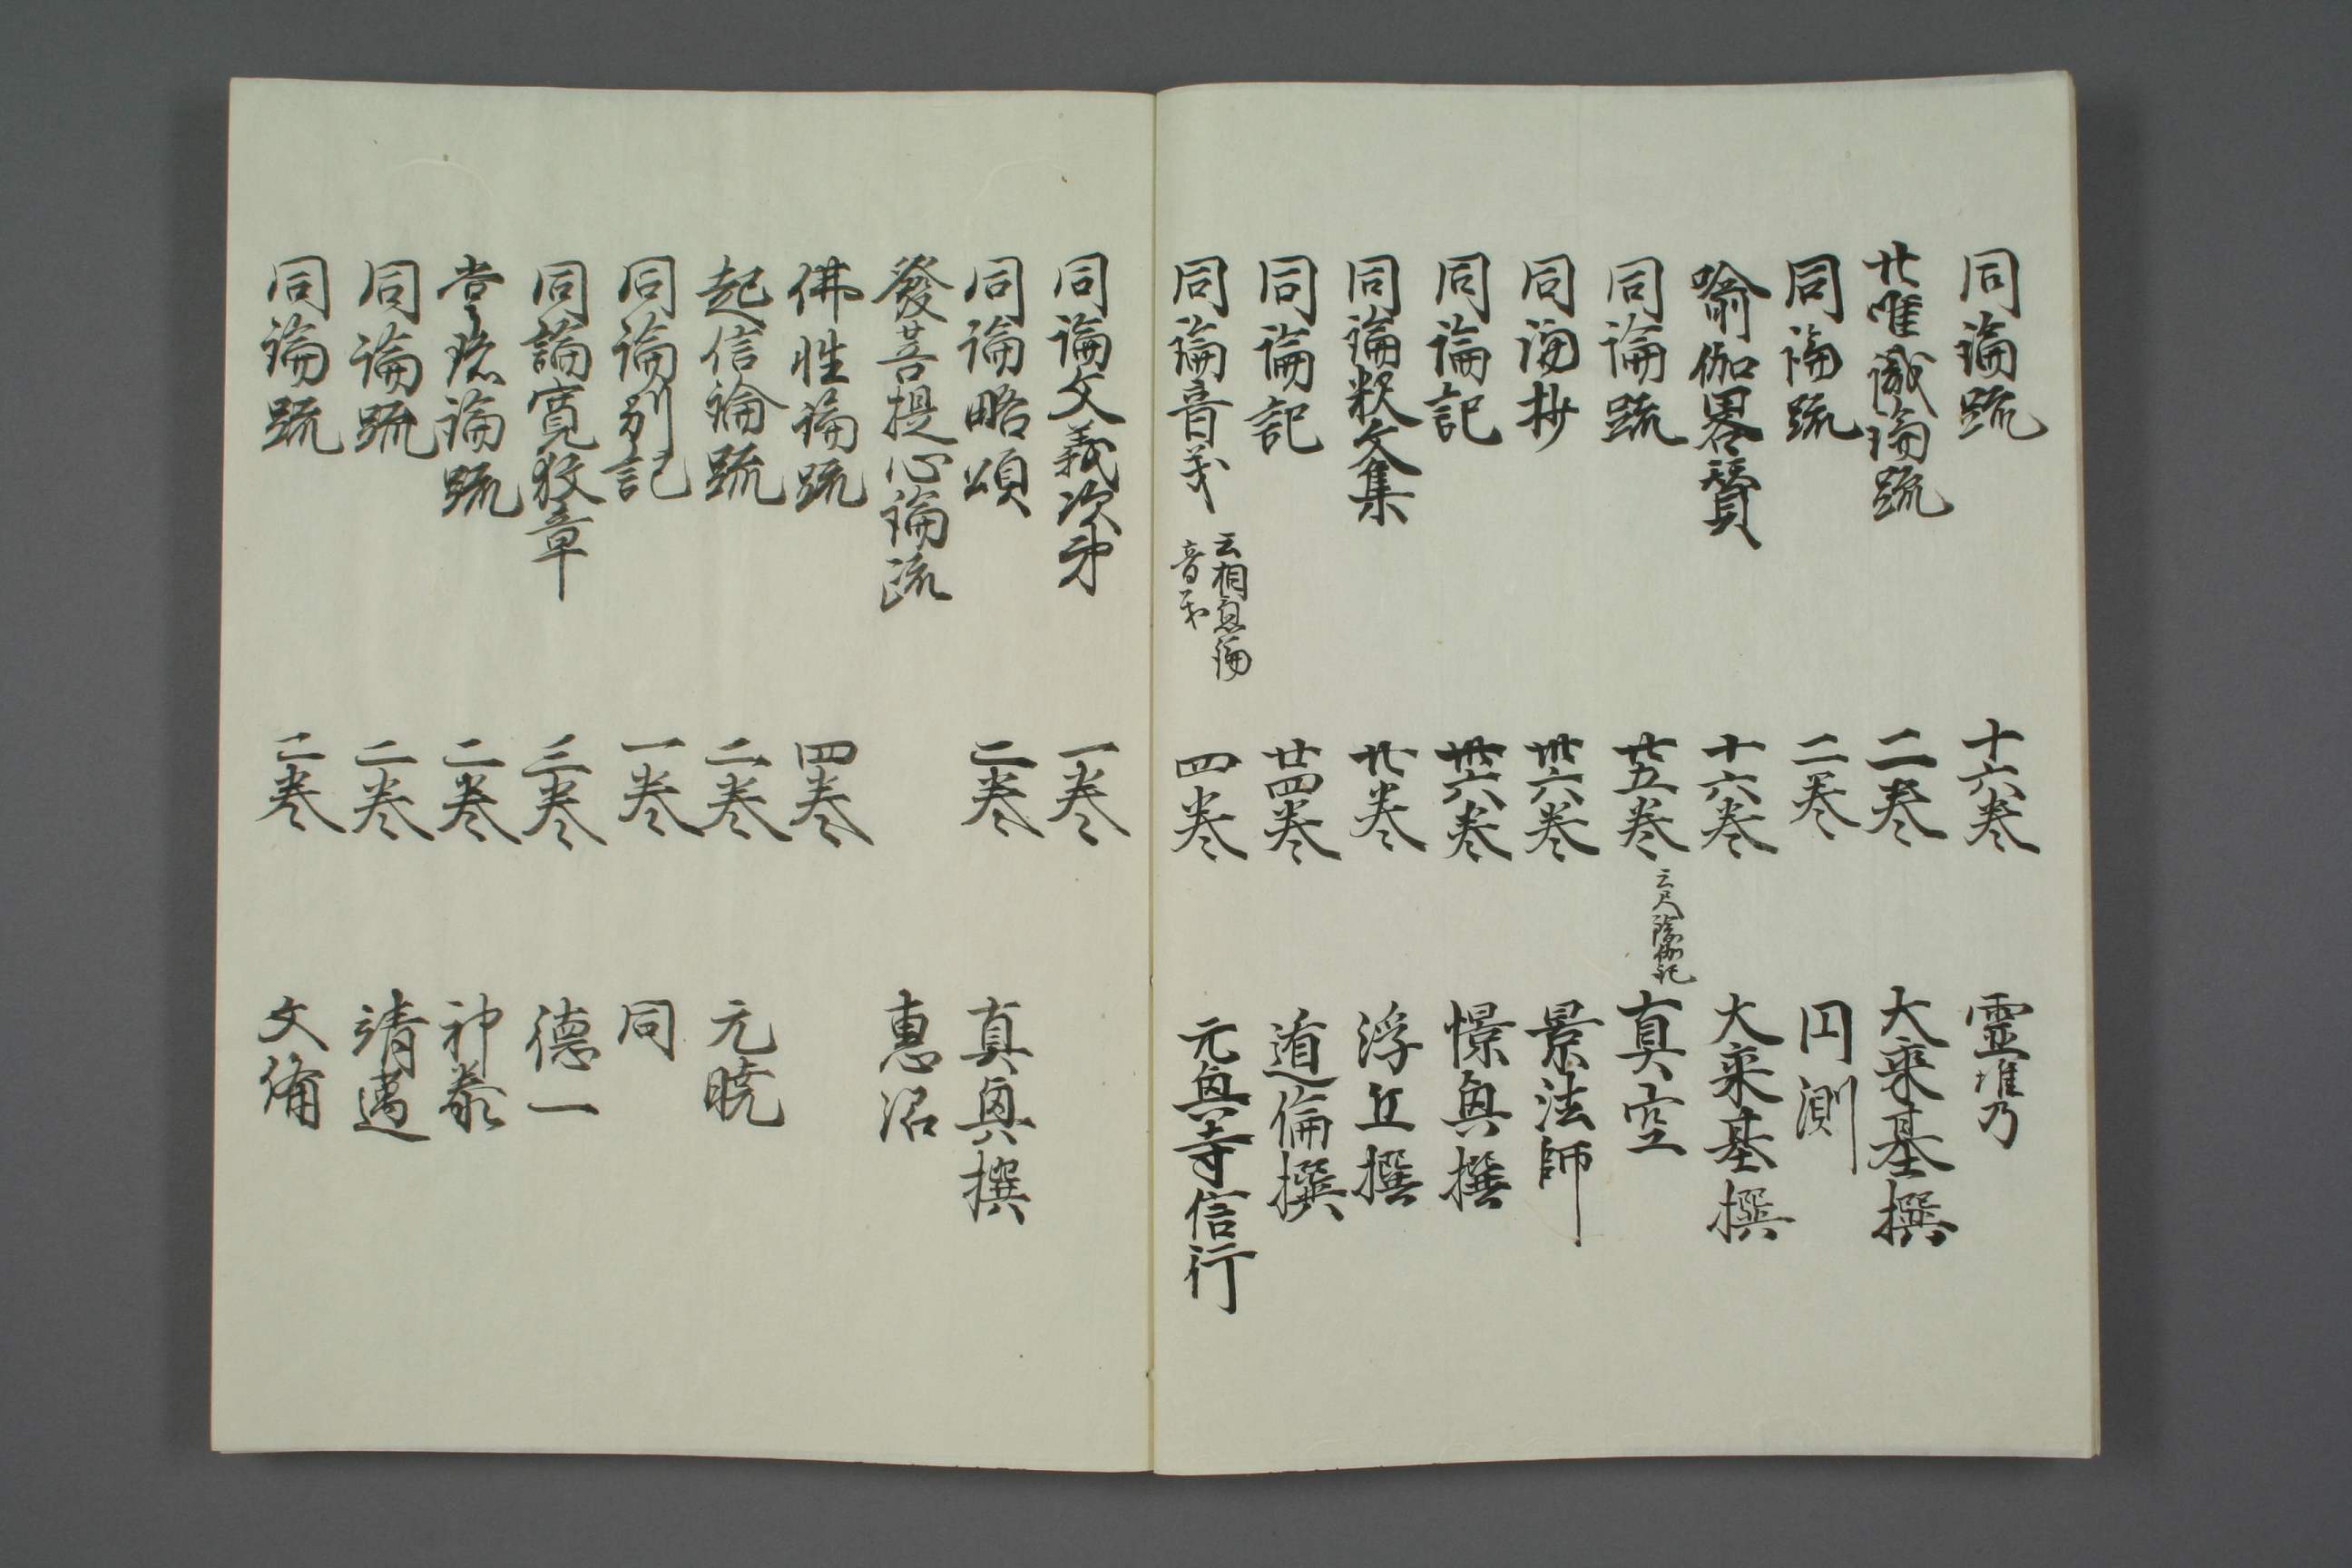 同論疏 十六巻 霊隽乃
廿唯識論疏 二巻 大乘基撰
同論疏 二巻 円測
喩伽畧賛 十六巻 大乘基撰
同論疏 廿五巻 真空
同論抄 卅六巻 景法師
同論記 卅六巻 憬興撰
同論釈文集 廿巻 浮丘撰
同論記 廿四巻 道倫撰
同論音義 云相 論音義 四巻 元興寺信行
同論文義次第 一巻
同論略頌 二巻 真興撰
發菩提心論疏 惠沼
佛性論疏 四巻
起信論疏 二巻 元暁
同論別記 一巻 同
同論寛狡章 三巻 德一
掌珎論疏 二巻 神泰
同論疏 二巻 靖邁
同論疏 二巻 文備